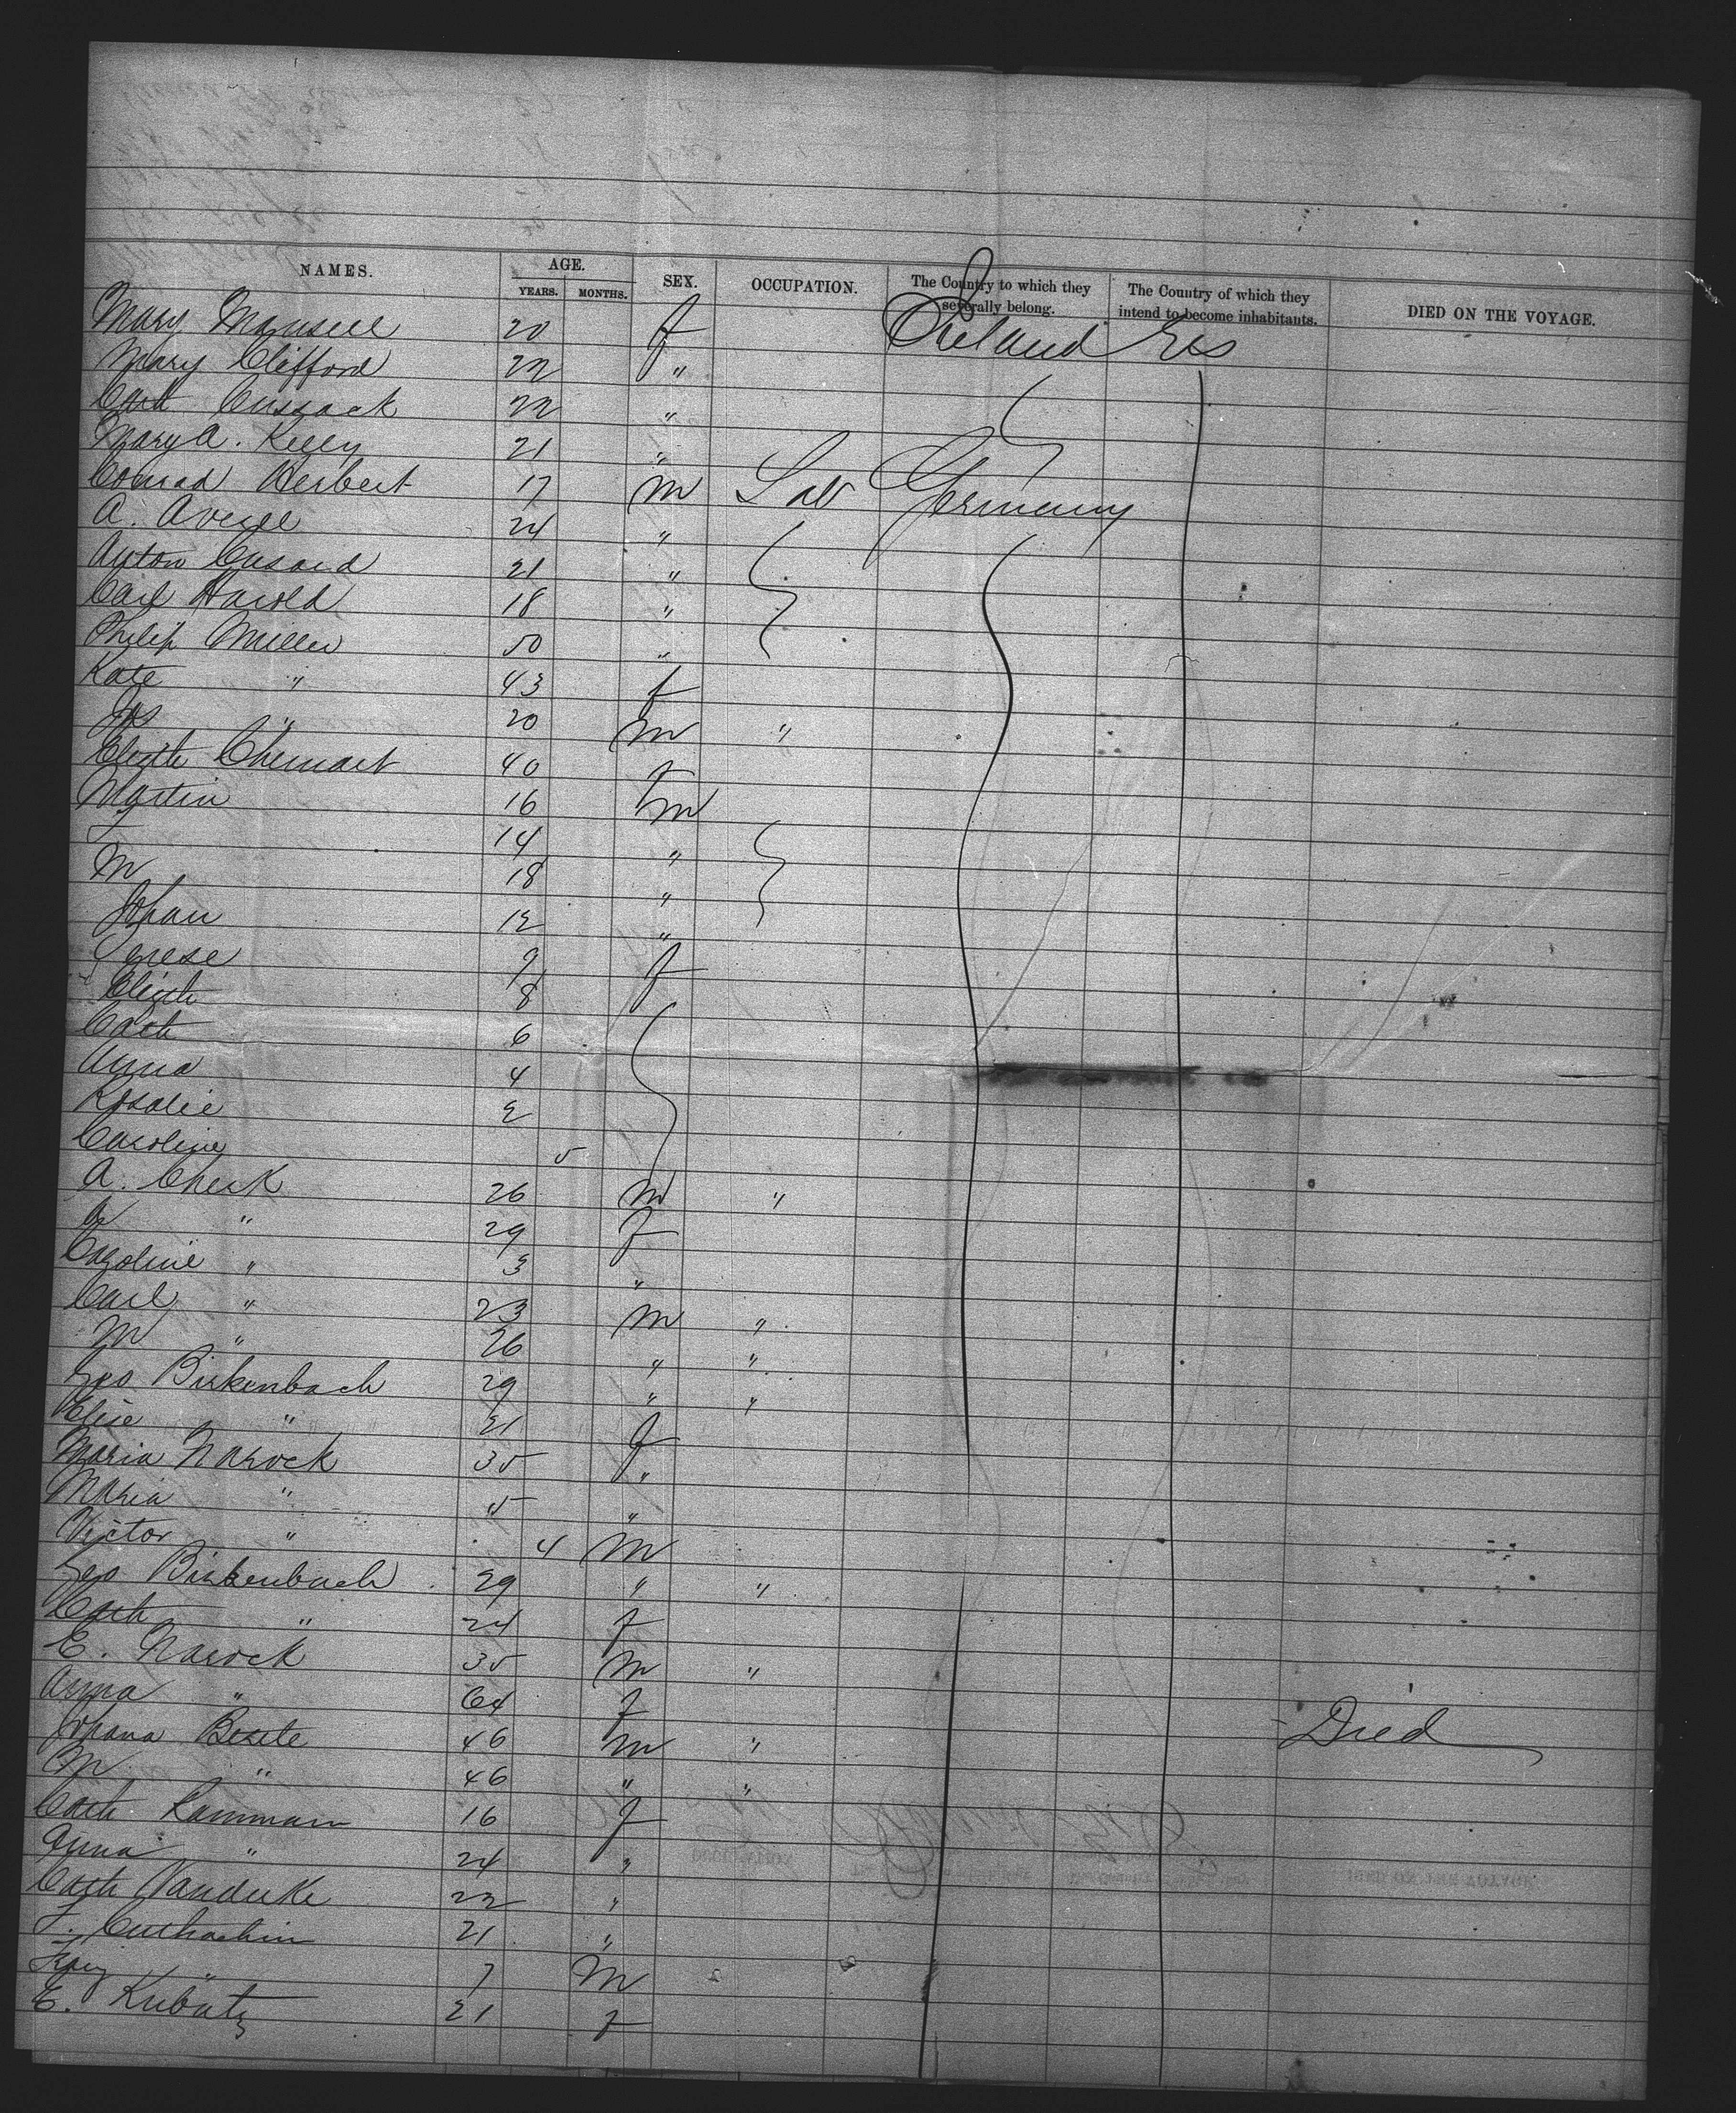 NAMES. AGE. SEX. OCCUPATION. The Country to which they severally belong. The Country of which they intend to become inhabitants. DIED ON THE VOYAGE.
YEARS. MONTHS.
Mary Mansell 20 f Ireland
Mary Clifford 22 "
Cath Cussack 22 "
Mary A. Kelly 21 "
Conrad Herbert 17 m Lab Germany
A. 24 "
Anton 21 "
Carl Harold 18 "
Philip Miller 50 "
Kate " 43 f
Jos " 20 m "
Elizth Chemart 40 f
Martin 16 m
14 "
M 18 "
Johan 12 "
9 f
Elizth 8
Cath 6
Anna 4
Rosalie 2
Caroline 5
A. Check 26 m "
A " 29 f
Caroline " 3 "
Carl " 23 m "
M " 26 " "
Geo Birkenbach 29 " "
Elise " 21 f
Maria Narock 35 "
Maria " 5 "
Victor " 4 m
Geo Birkenbach 29 " "
Cath " 24 f
E. Narock 35 m "
Anna " 64 f Died
Johana 46 m "
M " 46 " "
Cath Kammann 16 f
Anna " 24 "
Cath 22 "
21 "
" 7 m
E. Kubatz 21 f